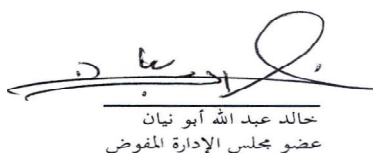 خالد عبد الله أبو نيان
عضو مجلس الإدارة المفوض